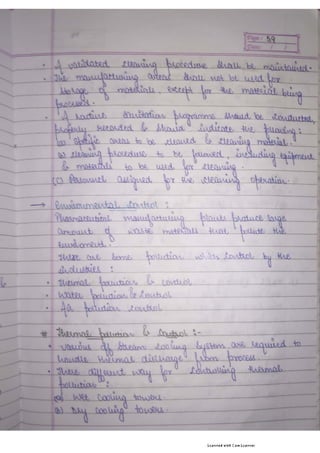 Page: 59
Date: / /
• A validated cleaning procedure shall be maintained.
• The manufacturing areas shall not be used for
storage of materials, except for the material being
processed.
• A routine sanitation programme should be conducted,
properly recorded & should indicate the following:
a) specific areas to be cleaned & cleaning material.
b) cleaning procedure to be followed, including equipment
& materials to be used for cleaning.
(c) Personnel assigned for the cleaning operation.
→ Environmental Control :
Pharmaceutical manufacturing plants produce large
amount of waste materials that pollute the
environment.
There are some pollution which control by the
industries :
• Thermal pollution & control
• Water pollution & control
• Air pollution control
* Thermal pollution & Control :-
• various off stream cooling system are required to
handle thermal discharge from process
• There different way for controlling thermal
pollution :
(a) wet cooling towers
(b) Dry cooling towers.
Scanned with CamScanner